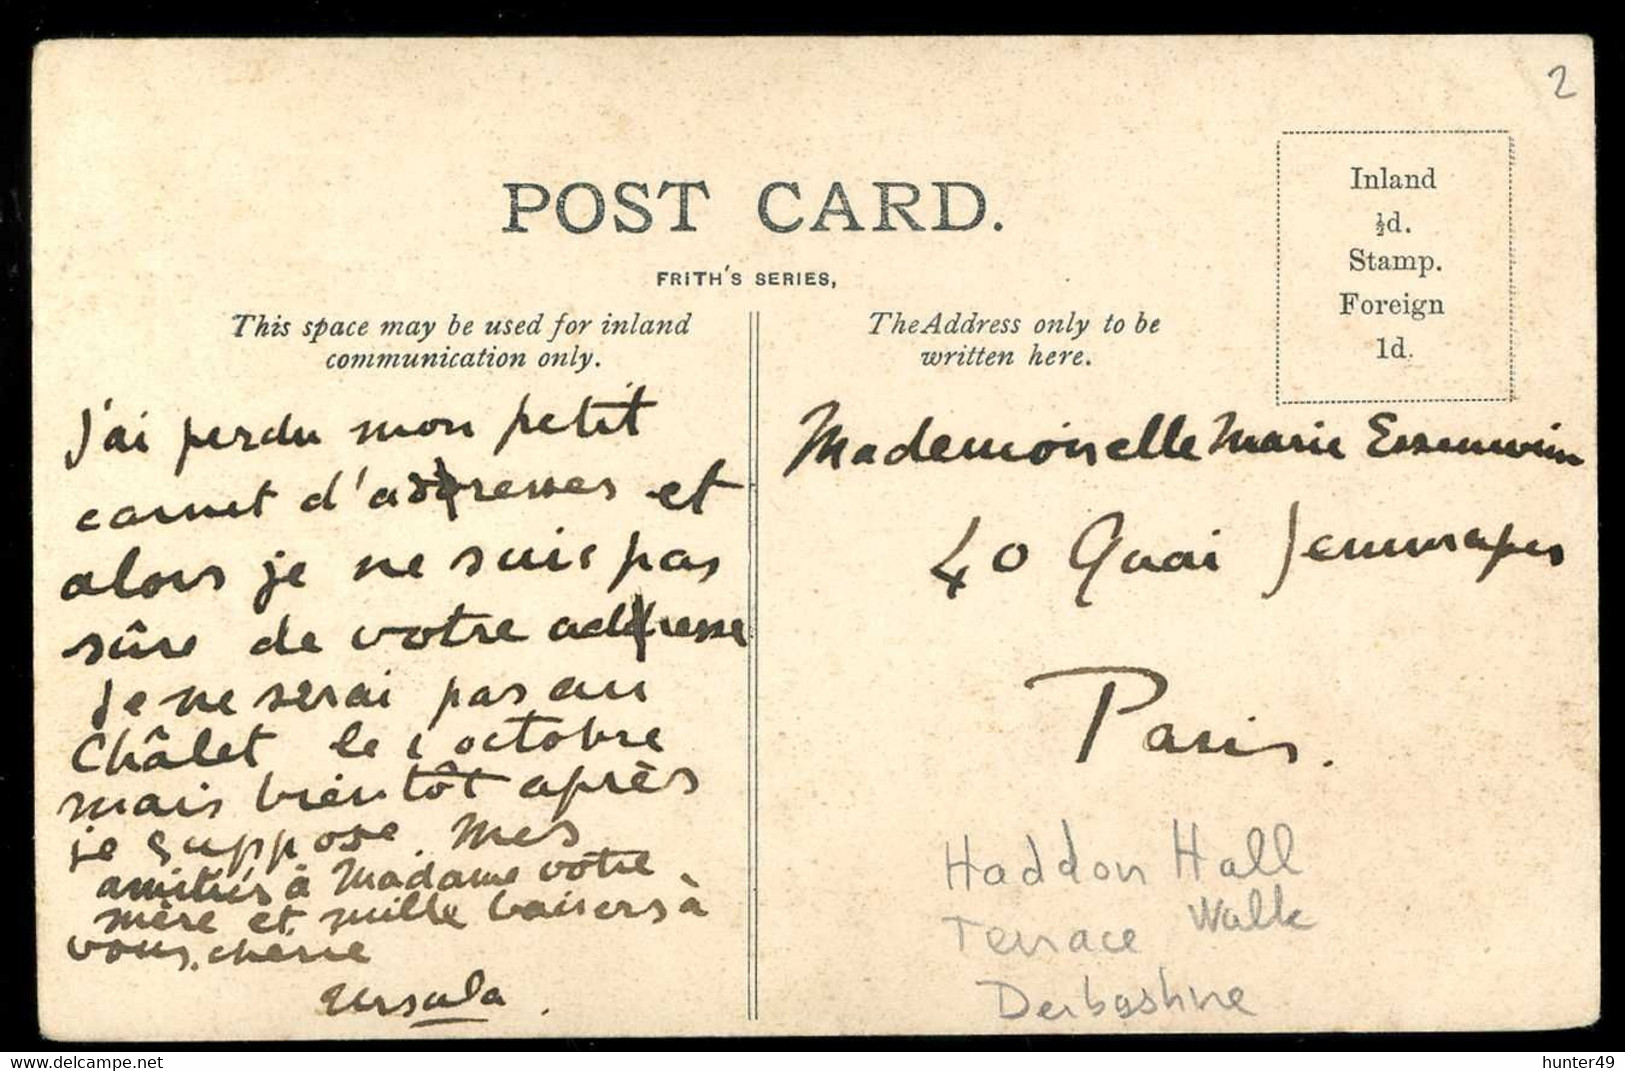 2
POST CARD.
FRITH'S SERIES,
This space may be used for inland
communication only.
The Address only to be
written here.
Inland
½d.
Stamp.
Foreign
1d.
J'ai perdu mon petit
carnet d'adresses et
alors je ne suis pas
sûre de votre adresse
Je ne serai pas au
Châlet le 1 octobre
mais bientôt après
je suppose. Mes
amitiés à Madame votre
mère et mille baisers à
vous, cherie
Ursula.
Mademoiselle Marie Essenwein
40 Quai Jemmapes
Paris.
Haddon Hall
Terrace Walk
Derbyshire
delcampe.net
hunter49